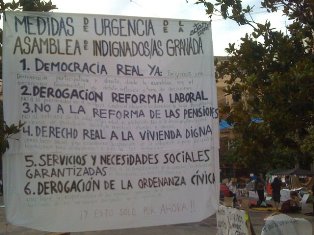 MEDIDAS DE URGENCIA DE LA
ASAMBLEA DE INDIGNADOS/AS GRANADA
1. DEMOCRACIA REAL YA:
2. DEROGACIÓN REFORMA LABORAL
3. NO A LA REFORMA DE LAS PENSIONES
4. DERECHO REAL A LA VIVIENDA DIGNA
5. SERVICIOS Y NECESIDADES SOCIALES
GARANTIZADAS
6. DEROGACIÓN DE LA ORDENANZA CÍVICA
¡Y ESTO SOLO POR AHORA!